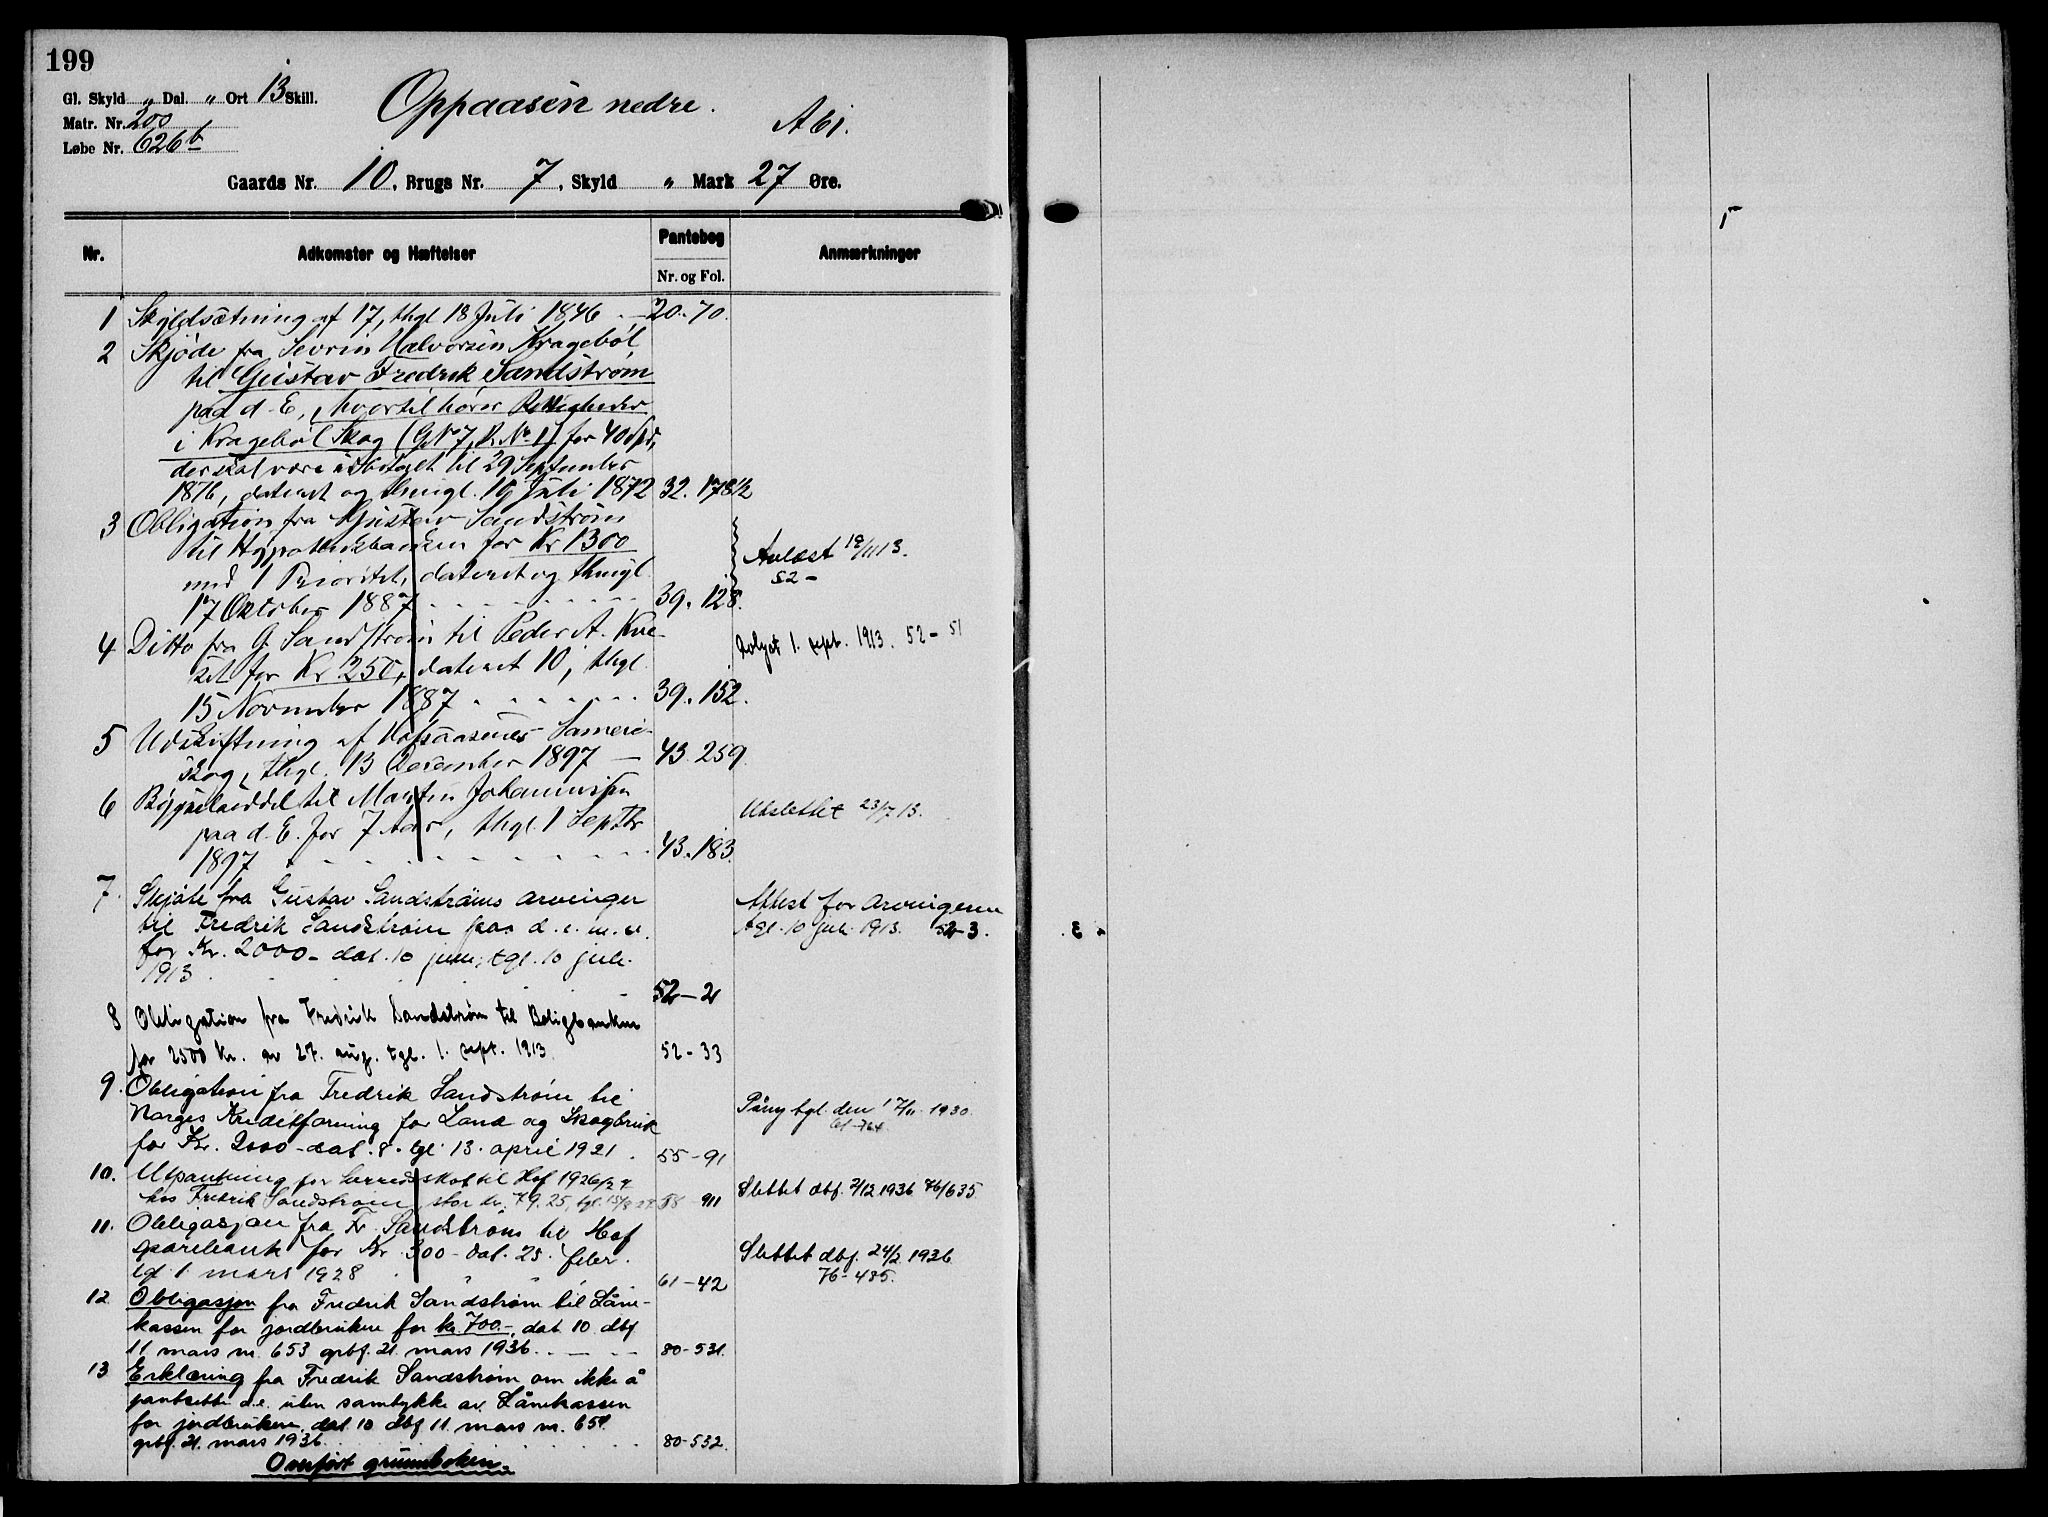 199
Gl. Skyld „ Dal. „ Ort 13 Skill.
Matr. Nr. 200
Løbe Nr. 626 b
Oppaasen nedre.
A 61.
Gaards Nr. 10, Brugs Nr. 7, Skyld „ Mark 27 Øre.
Nr. Adkomster og Hæftelser Pantebog Nr. og Fol. Anmærkninger
1 Skyldsætning af 17, thgl 18 Juli 1846 . — 20. 70.
2 Skjøde fra Sevrin Halvorsen Kragebøl
til Gustav Fredrik Sandstrøm
paa d. E., hvortil hører Rettigheder
i Kragebøl Skog (G.Nº 7, B.Nº 1) for 40 Spd,
der skal være udbetalt til 29 September
1876, dateret og thingl. 16 Juli 1872 32. 178½
3 Obligation fra Gustav Sandstrøm
til Hypothekbanken for Kr 1300
med 1 Prioritet, dateret og thingl.
17 Oktober 1887 . . . . . . . . 39. 128.
Avlæst 12/11 13.
52 –
4 Ditto fra G. Sandstrøm til Peder A. Kve-
set for Kr. 250, dateret 10, thgl.
15 November 1887 . . . . . . 39. 152.
Avlyst 1. sept. 1913. 52 – 51
5 Udskiftning af Hofsaasenes Sameie-
skog, thgl. 13 December 1897 — 43. 259.
6 Bygselseddel til Martin Johannissen
paa d. E. for 7 Aar, thgl. 1 Septbr
1897 . . . . . . . . . . 43. 183.
Utslettet 23/7 13.
7. Skjøte fra Gustav Sandstrøms arvinger
til Fredrik Sandstrøm paa d. e. m. v.
for Kr. 2000 – dat. 10 juni, tgl. 10 juli
1913 . . . . . 52 – 2
Attest for arvingene
tgl. 10 juli 1913. 52 – 3.
8 Obligation fra Fredrik Sandstrøm til Boligbanken
for 2500 Kr. av 27. aug. tgl. 1. sept. 1913. 52 – 33
9. Obligation fra Fredrik Sandstrøm til
Norges Kreditforening for Land og Skogbruk
for Kr. 2000 – dat. 8. tgl. 13. april 1921 . 55 – 91
Påny tgl. den 17/11 1930.
10. Utpantning for herredsskat til Hof 1926/27
hos Fredrik Sandstrøm, stor kr. 79.25, tgl. 15/8 27. 58 911
Slettet dbf. 2/12 1936 76/635
11. Obligasjon fra Fr. Sandstrøm til Hof
sparebank for Kr. 300 – dat. 25. febr.
tgl 1 mars 1928 . 61 – 42
Slettet dbf. 24/2 1936
76 – 485.
12. Obligasjon fra Fredrik Sandstrøm til Låne-
kassen for jordbrukere for kr. 700.–, dat. 10. dbf
11 mars nr. 653 grbf. 21. mars 1936 . . — . . 80 – 531.
13 Erklæring fra Fredrik Sandstrøm om ikke å
pantsette d.e. uten samtykke av Lånekassen
for jordbrukere, dat. 10 dbf 11. mars nr. 654
grbf. 21. mars 1936 . . . . . . . 80 – 532.
Overført grunnboken.